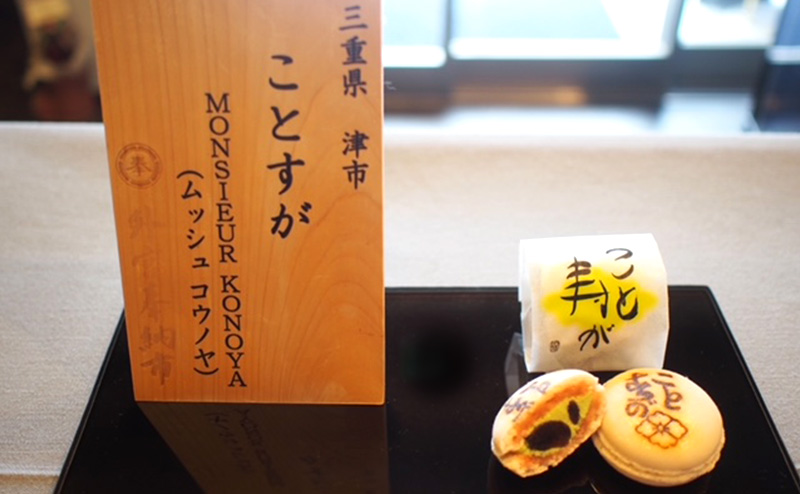 三重県 津市
ことすが
MONSIEUR KONOYA
(ムッシュ コウノヤ)
奉
こと
寿が
こと
すがの